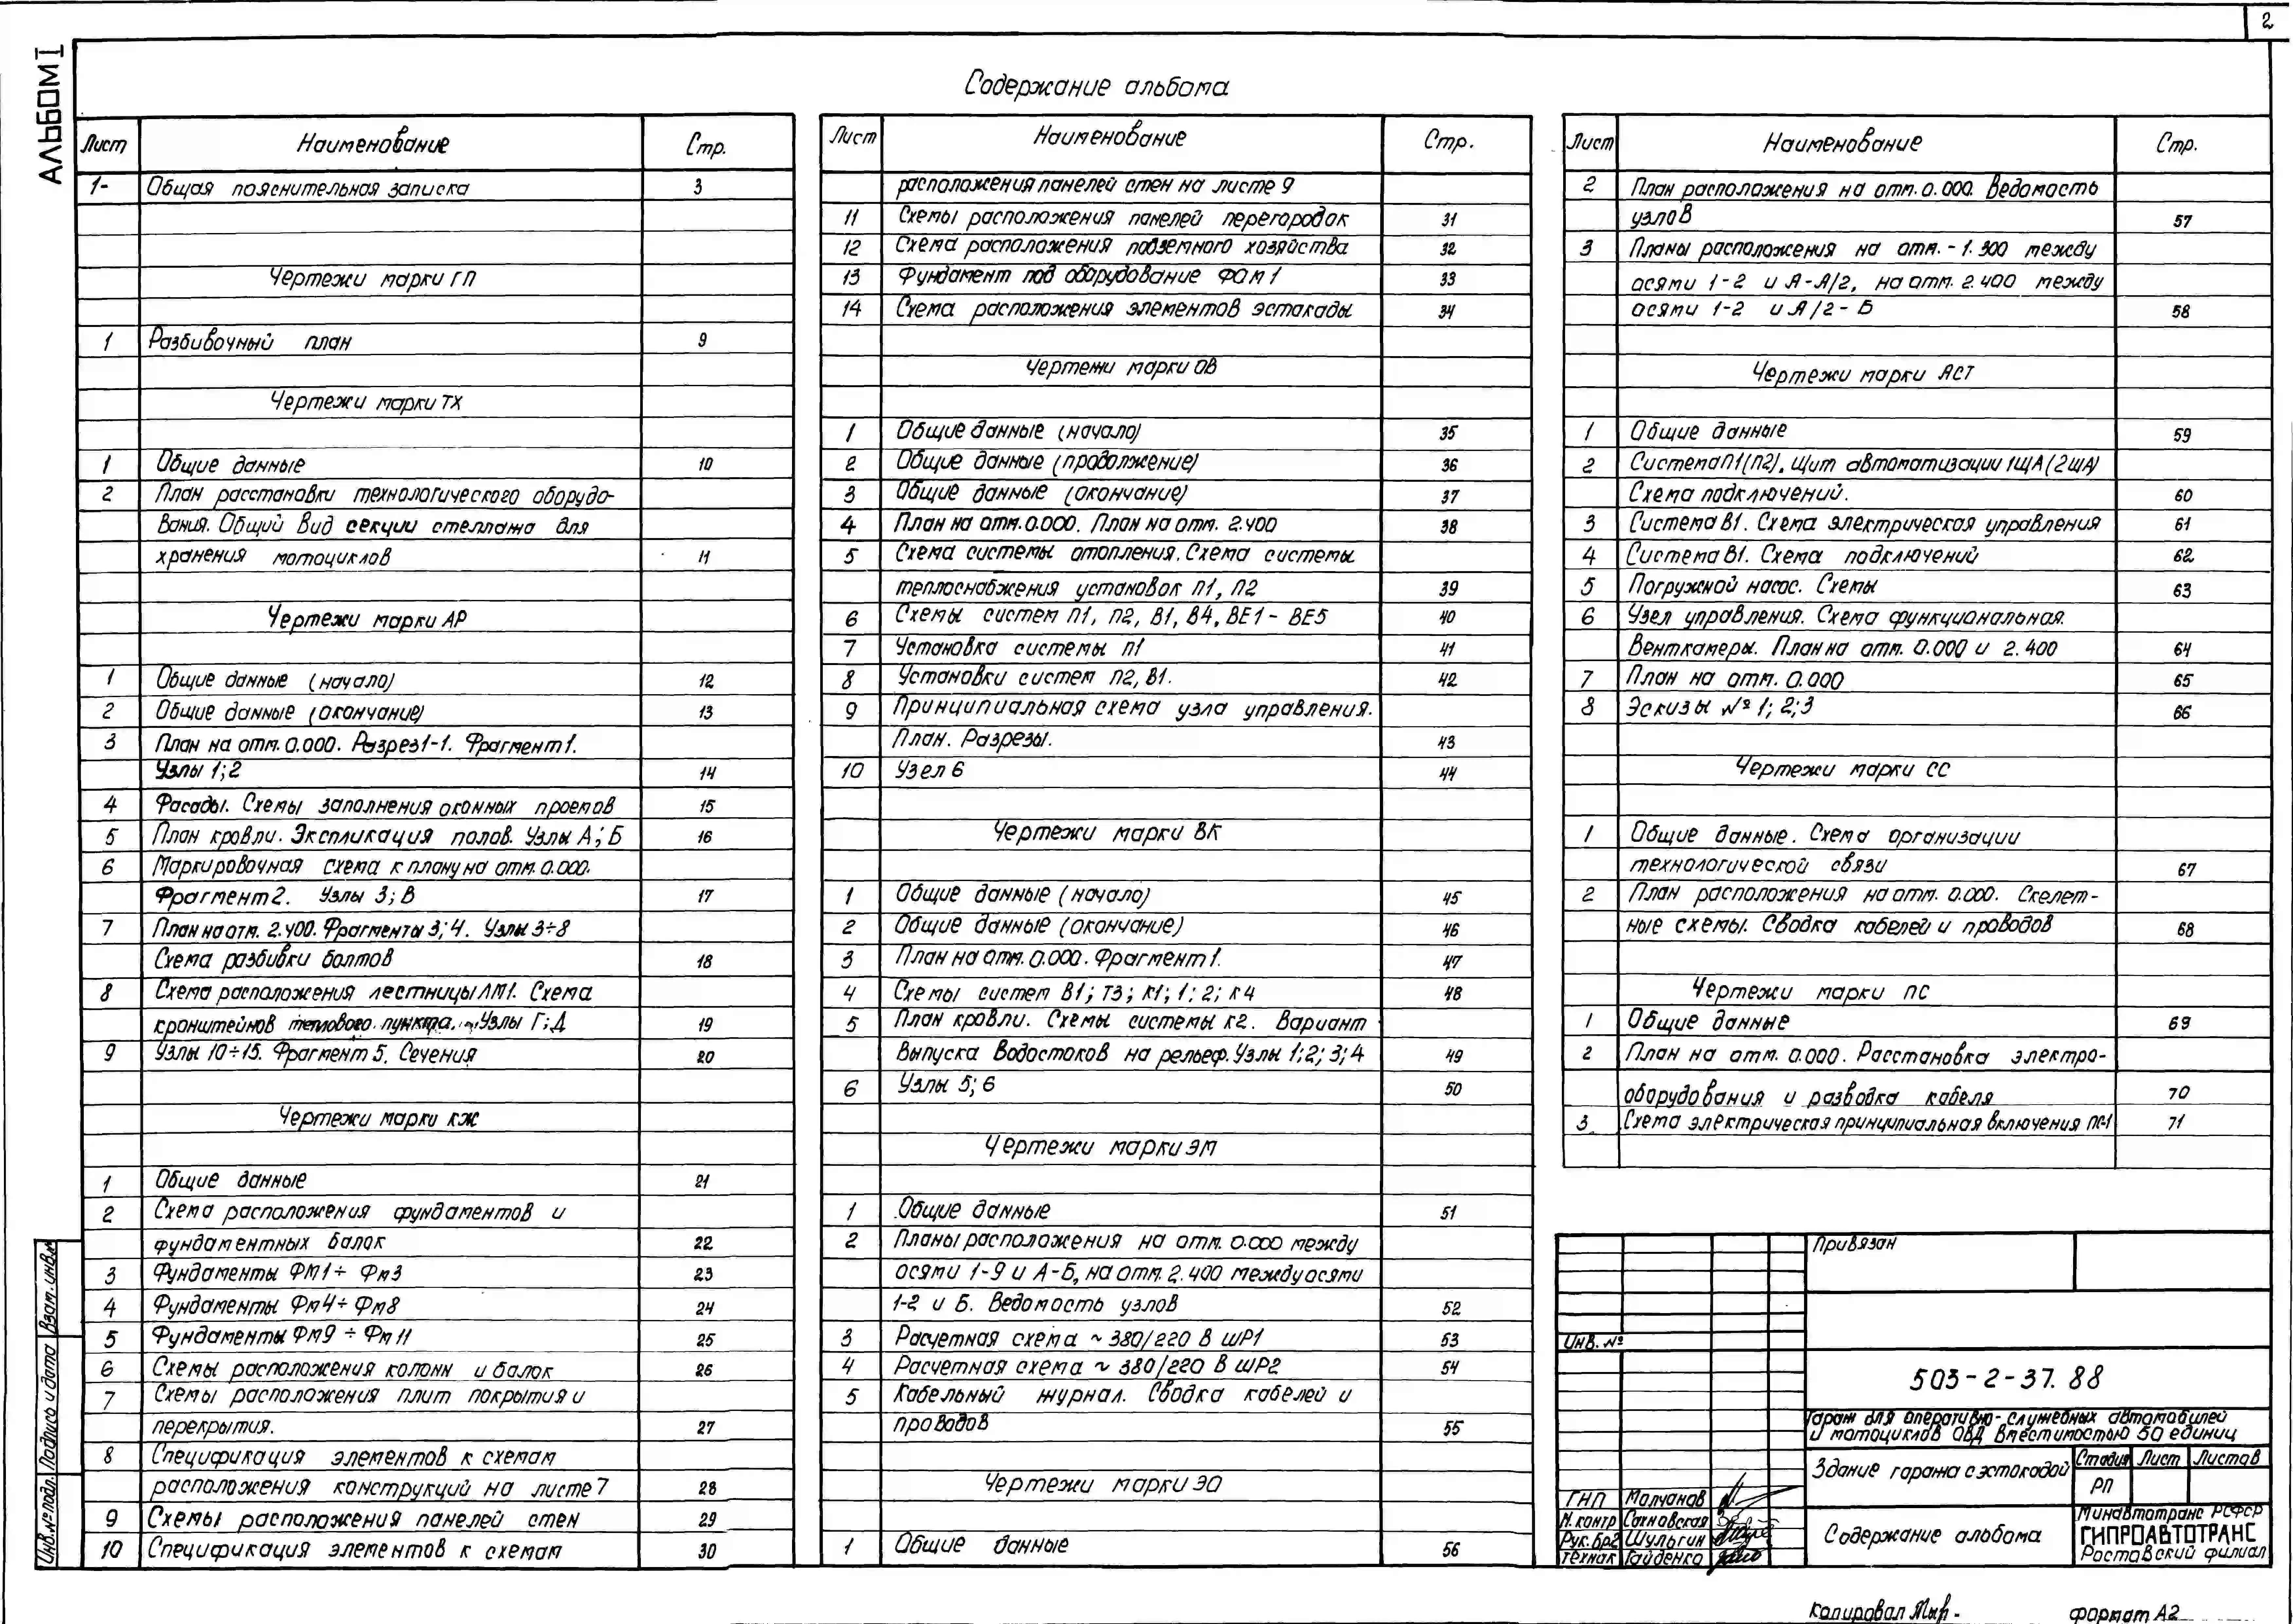 2
АЛЬБОМ I
Содержание альбома
Лист Наименование Стр.
1- Общая пояснительная записка 3
Чертежи марки ГП
1 Разбивочный план 9
Чертежи марки ТХ
1 Общие данные 10
2 План расстановки технологического оборудо-
вания. Общий вид секции стеллажа для
хранения мотоциклов 11
Чертежи марки АР
1 Общие данные (начало) 12
2 Общие данные (окончание) 13
3 План на отм. 0.000. Разрез 1-1. Фрагмент 1.
Узлы 1; 2 14
4 Фасады. Схемы заполнения оконных проемов 15
5 План кровли. Экспликация полов. Узлы А; Б 16
6 Маркировочная схема к плану на отм. 0.000.
Фрагмент 2. Узлы 3; В 17
7 План на отм. 2.400. Фрагменты 3; 4. Узлы 3÷8
Схема разбивки болтов 18
8 Схема расположения лестницы ЛМ1. Схема
кронштейнов теплового пункта. Узлы Г; Д 19
9 Узлы 10÷15. Фрагмент 5. Сечения 20
Чертежи марки КЖ
1 Общие данные 21
2 Схема расположения фундаментов и
фундаментных балок 22
3 Фундаменты ФМ1÷ Фм3 23
4 Фундаменты Фм4÷ Фм8 24
5 Фундаменты Фм9 ÷ Фм11 25
6 Схемы расположения колонн и балок 26
7 Схемы расположения плит покрытия и
перекрытия. 27
8 Спецификация элементов к схемам
расположения конструкций на листе 7 28
9 Схемы расположения панелей стен 29
10 Спецификация элементов к схемам 30
Лист Наименование Стр.
расположения панелей стен на листе 9
11 Схемы расположения панелей перегородок 31
12 Схема расположения подземного хозяйства 32
13 Фундамент под оборудование ФОМ 1 33
14 Схема расположения элементов эстакады 34
Чертежи марки ОВ
1 Общие данные (начало) 35
2 Общие данные (продолжение) 36
3 Общие данные (окончание) 37
4 План на отм. 0.000. План на отм. 2.400 38
5 Схема системы отопления. Схема системы
теплоснабжения установок П1, П2 39
6 Схемы систем П1, П2, В1, В4, ВЕ1 - ВЕ5 40
7 Установка системы П1 41
8 Установки систем П2, В1. 42
9 Принципиальная схема узла управления.
План. Разрезы. 43
10 Узел 6 44
Чертежи марки ВК
1 Общие данные (начало) 45
2 Общие данные (окончание) 46
3 План на отм. 0.000. Фрагмент 1. 47
4 Схемы систем В1; Т3; К1; 1; 2; К4 48
5 План кровли. Схемы системы К2. Вариант
выпуска водостоков на рельеф. Узлы 1; 2; 3; 4 49
6 Узлы 5; 6 50
Чертежи марки ЭМ
1 Общие данные 51
2 Планы расположения на отм. 0.000 между
осями 1-9 и А-Б, на отм. 2.400 между осями
1-2 и Б. Ведомость узлов 52
3 Расчетная схема ~ 380/220 В ШР1 53
4 Расчетная схема ~ 380/220 В ШР2 54
5 Кабельный журнал. Сводка кабелей и
проводов 55
Чертежи марки ЭО
1 Общие данные 56
Лист Наименование Стр.
2 План расположения на отм. 0.000. Ведомость
узлов 57
3 Планы расположения на отм. - 1.300 между
осями 1-2 и А-А/2, на отм. 2.400 между
осями 1-2 и А/2- Б 58
Чертежи марки АСТ
1 Общие данные 59
2 Система П1(П2). Щит автоматизации 1ЩА (2ЩА)
Схема подключений. 60
3 Система В1. Схема электрическая управления 61
4 Система В1. Схема подключений 62
5 Погружной насос. Схемы 63
6 Узел управления. Схема функциональная.
Венткамеры. План на отм. 0.000 и 2.400 64
7 План на отм. 0.000 65
8 Эскизы № 1; 2; 3 66
Чертежи марки СС
1 Общие данные. Схема организации
технологической связи 67
2 План расположения на отм. 0.000. Скелет-
ные схемы. Сводка кабелей и проводов 68
Чертежи марки ПС
1 Общие данные 69
2 План на отм. 0.000. Расстановка электро-
оборудования и разводка кабеля 70
3 Схема электрическая принципиальная включения ПС-1 71
Привязан
Инв. №
503-2-37.88
Гараж для оперативно-служебных автомобилей
и мотоциклов ОВД вместимостью 50 единиц
Здание гаража с эстакадой
Стадия Лист Листов
РП
ГНП Молчанов
Н. контр Сахновская
Рук. бр2 Шульгин
Технак Гайденко
Содержание альбома
Минавтотранс РСФСР
ГИПРОАВТОТРАНС
Ростовский филиал
Инв.№ подл. Подпись и дата Взам. инв.№
Копировал
формат А2